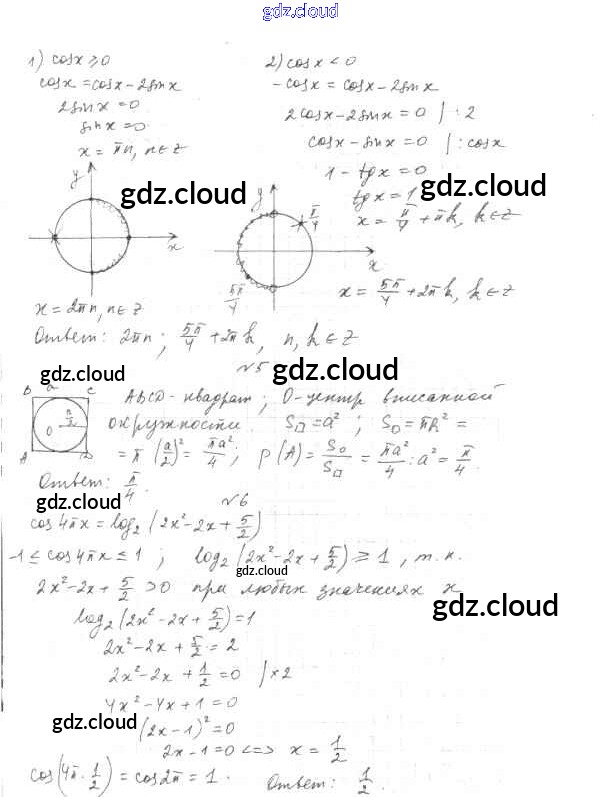 gdz.cloud
1) cosx ≥ 0
cosx = cosx - 2sinx
2sinx = 0
sinx = 0
x = πn, n∈z
2) cosx < 0
-cosx = cosx - 2sinx
2cosx - 2sinx = 0 | : 2
cosx - sinx = 0 | : cosx
1 - tgx = 0
tgx = 1
x = π/4 + πk, k∈z
gdz.cloud
gdz.cloud
y
x
y
π/4
5π/4
x
x = 2πn, n∈z
x = 5π/4 + 2πk, k∈z
Ответ: 2πn; 5π/4 + 2πk, n, k∈z
№5
gdz.cloud
gdz.cloud
B a C
O
A D
ABCD - квадрат; O - центр вписанной
окружности. S□ = a²; S○ = πR² =
= π(a/2)² = πa²/4; P(A) = S○/S□ = πa²/4 : a² = π/4
Ответ: π/4.
gdz.cloud
№6
cos4πx = log₂(2x² - 2x + 5/2)
-1 ≤ cos4πx ≤ 1; log₂(2x² - 2x + 5/2) ≥ 1, т.к.
gdz.cloud
2x² - 2x + 5/2 > 0 при любых значениях x
gdz.cloud
log₂(2x² - 2x + 5/2) = 1
2x² - 2x + 5/2 = 2
2x² - 2x + 1/2 = 0 | ×2
4x² - 4x + 1 = 0
gdz.cloud
(2x - 1)² = 0
2x - 1 = 0 <=> x = 1/2
cos(4π · 1/2) = cos2π = 1. Ответ: 1/2.
gdz.cloud